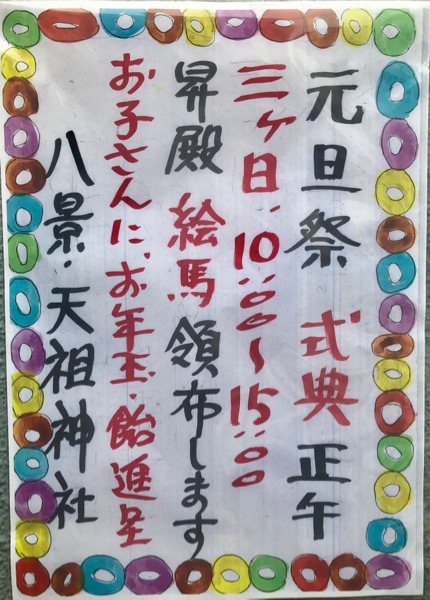 元旦祭 式典 正午
三ヶ日:10:00〜15:00
昇殿 絵馬領布します
お子さんに、お年玉・飴進呈
八景・天祖神社